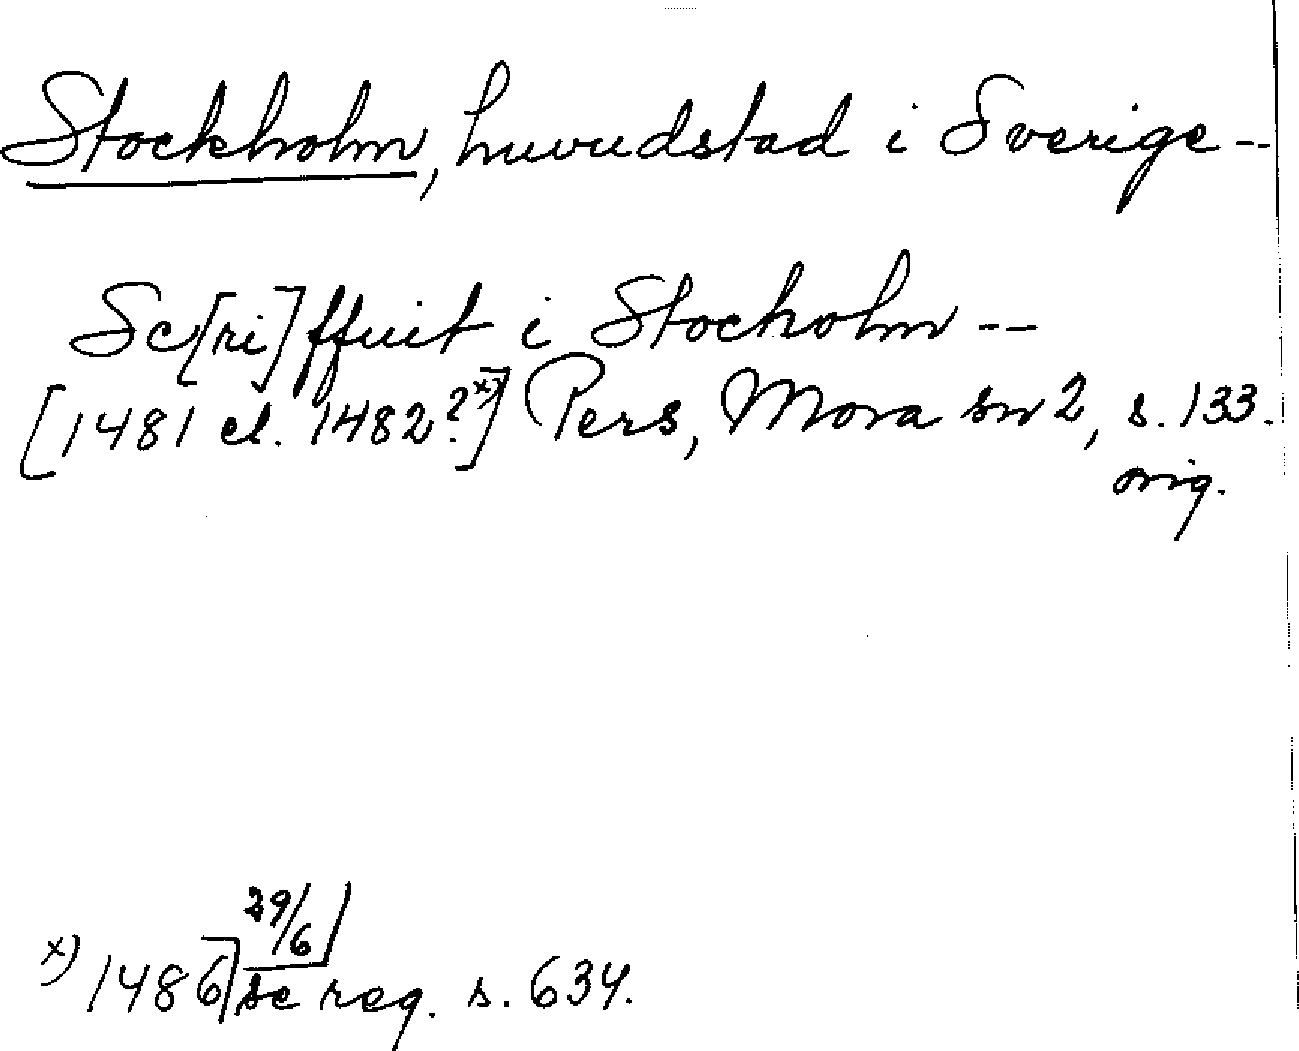 Stockholm, huvudstad i Sverige --
Sc[ri]ffuit i Stocholm --
[1481 el. 1482?x)] Pers, Mora sn 2, s. 133.
orig.
29/6
x) 1486] se reg. s. 634.